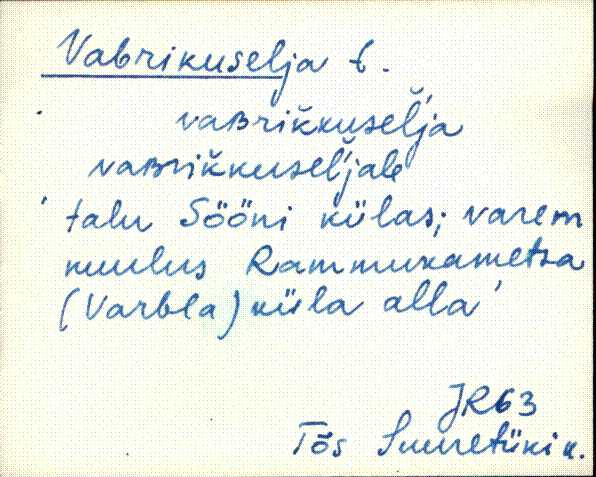 Vabrikuselja t.
vaʙrikkuseĺja
vaʙrikkuseĺjale
'talu Sööni külas; varem
kuulus Rammukametsa
(Varbla) küla alla'
JR63
Tõs Suuretüki k.